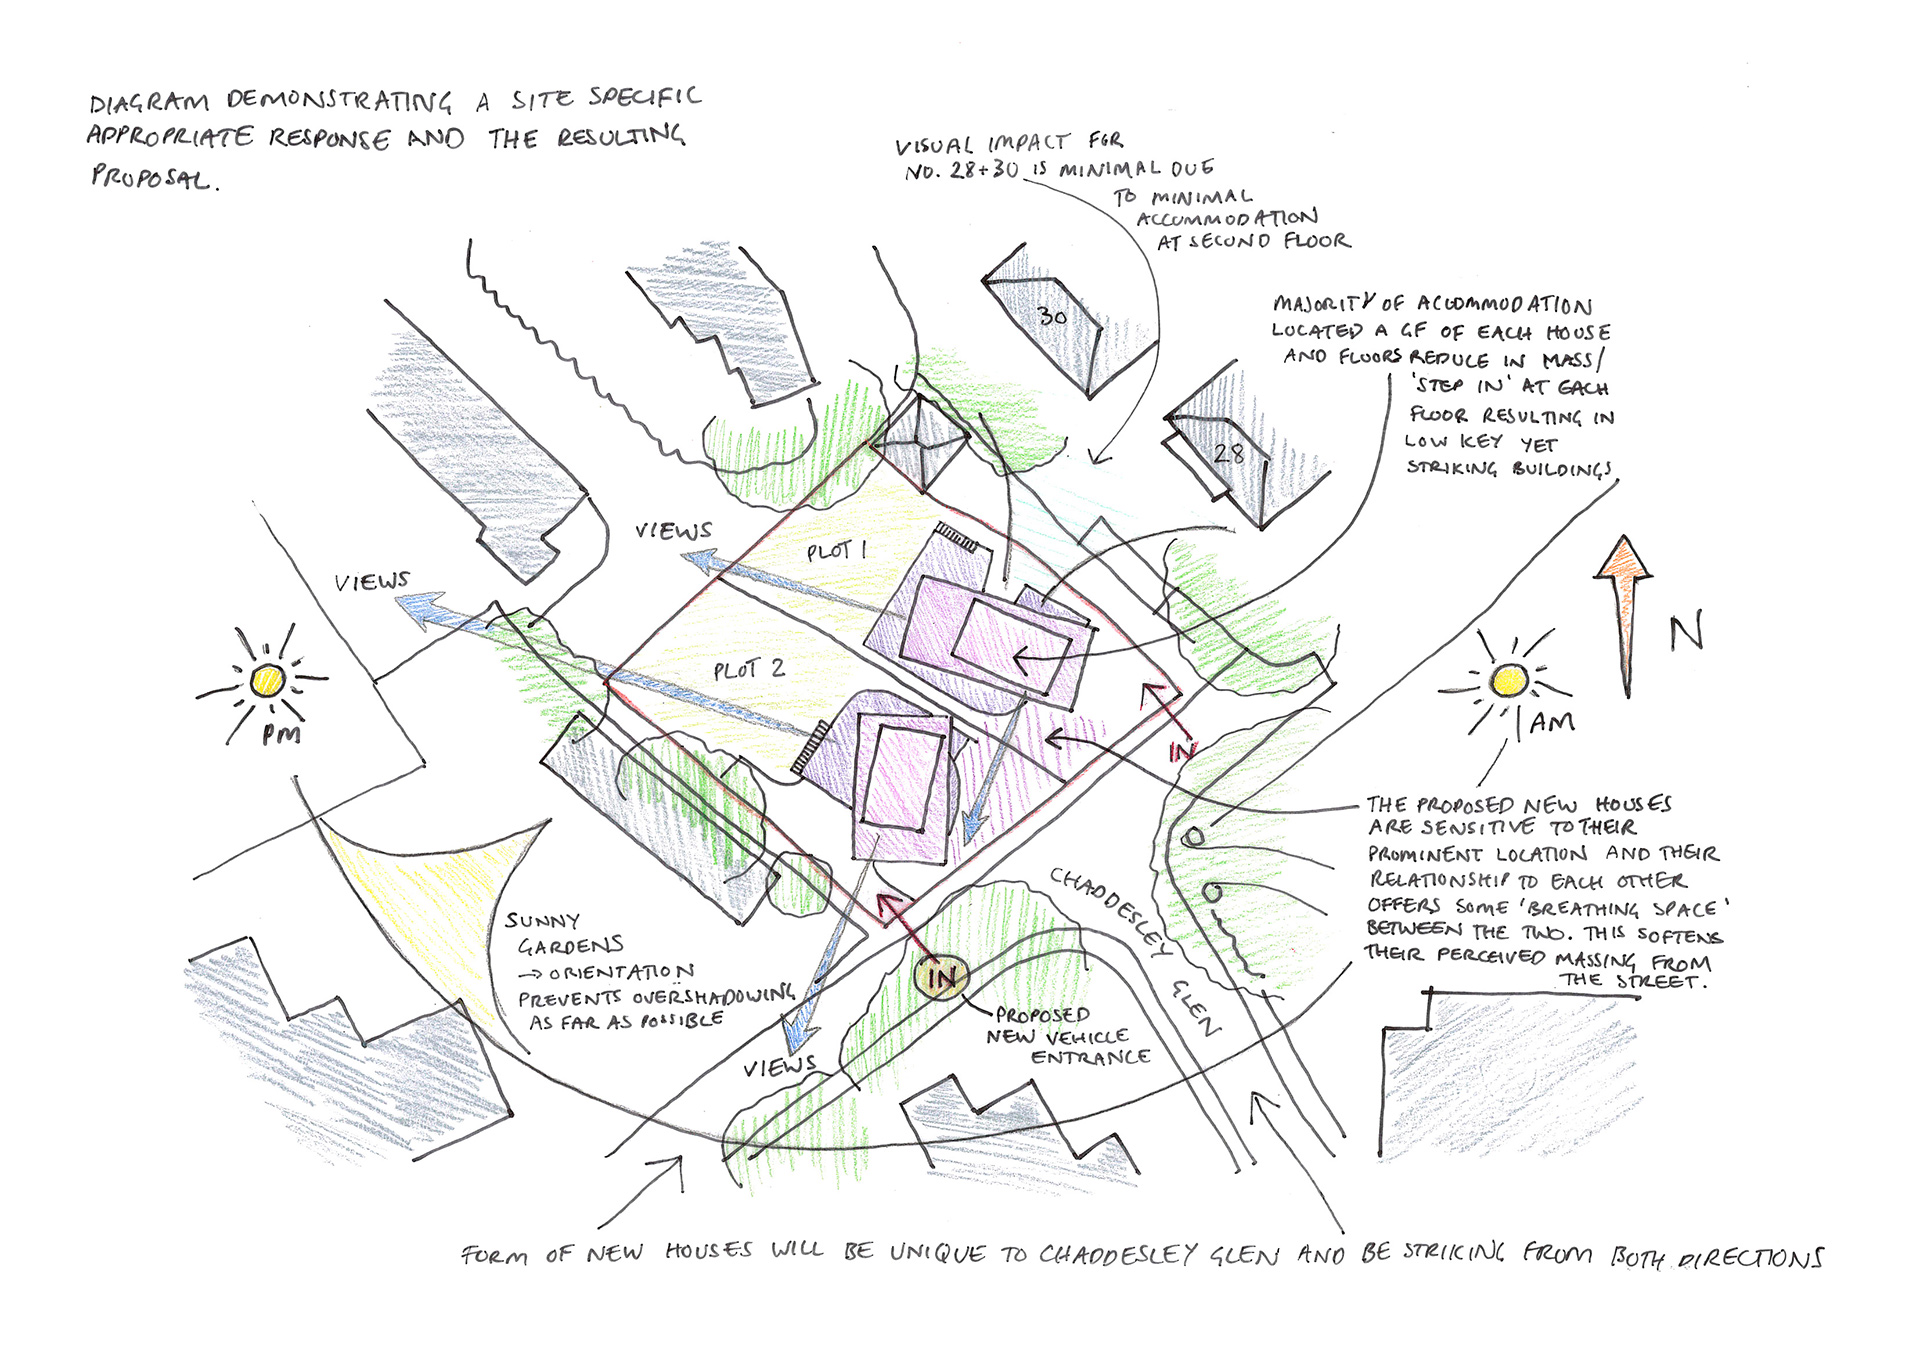 DIAGRAM DEMONSTRATING A SITE SPECIFIC
APPROPRIATE RESPONSE AND THE RESULTING
PROPOSAL.
VISUAL IMPACT FOR
NO. 28+30 IS MINIMAL DUE
TO MINIMAL
ACCOMMODATION
AT SECOND FLOOR
30
28
MAJORITY OF ACCOMMODATION
LOCATED A GF OF EACH HOUSE
AND FLOORS REDUCE IN MASS/
'STEP IN' AT EACH
FLOOR RESULTING IN
LOW KEY YET
STRIKING BUILDINGS
VIEWS
PLOT 1
VIEWS
PLOT 2
N
PM
AM
IN
THE PROPOSED NEW HOUSES
ARE SENSITIVE TO THEIR
PROMINENT LOCATION AND THEIR
RELATIONSHIP TO EACH OTHER
OFFERS SOME 'BREATHING SPACE'
BETWEEN THE TWO. THIS SOFTENS
THEIR PERCEIVED MASSING FROM
THE STREET.
CHADDESLEY GLEN
SUNNY
GARDENS
→ ORIENTATION
PREVENTS OVERSHADOWING
AS FAR AS POSSIBLE
IN
PROPOSED
NEW VEHICLE
ENTRANCE
VIEWS
FORM OF NEW HOUSES WILL BE UNIQUE TO CHADDESLEY GLEN AND BE STRIKING FROM BOTH DIRECTIONS